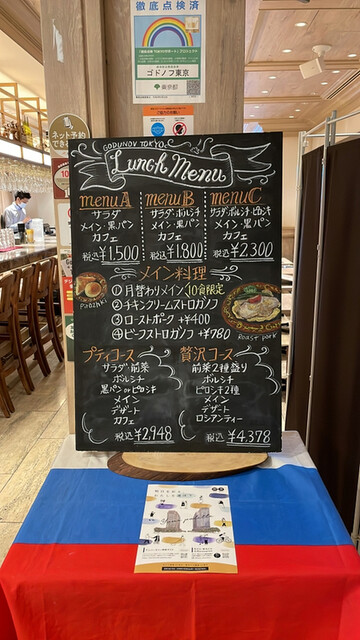 徹底点検済
ゴドノフ東京
東京都
ネット予約
できます
GODUNOV TOKYO
Lunch Menu
menu A
サラダ
メイン・黒パン
カフェ
税込 ¥1,500
menu B
サラダ・ボルシチ
メイン・黒パン
カフェ
税込 ¥1,800
menu C
サラダ・ボルシチ・ピロシキ
メイン・黒パン
カフェ
税込 ¥2,300
メイン料理
①月替わりメイン 10食限定
②チキンクリームストロガノフ
③ローストポーク +¥400
④ビーフストロガノフ +¥780
Pirozhki
Roast pork
プティコース
サラダ・前菜
ボルシチ
黒パン or ピロシキ
メイン
デザート
カフェ
税込 ¥2,948
贅沢コース
前菜2種盛り
ボルシチ
ピロシキ2種
メイン
デザート
ロシアンティー
税込 ¥4,378